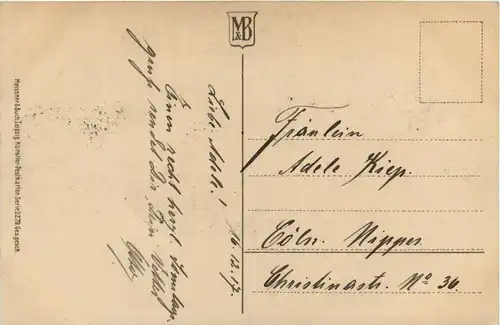 M&B
Meissner & Buch, Leipzig. Künstler-Postkarten Serie 2279 Ges. gesch.
16.12.17.
Liebe Adele!
Einen recht herzl. Sonntags-
sendet Dir Dein
Fräulein
Adele Kiep.
Cöln. Nippes
Christinastr. No 36